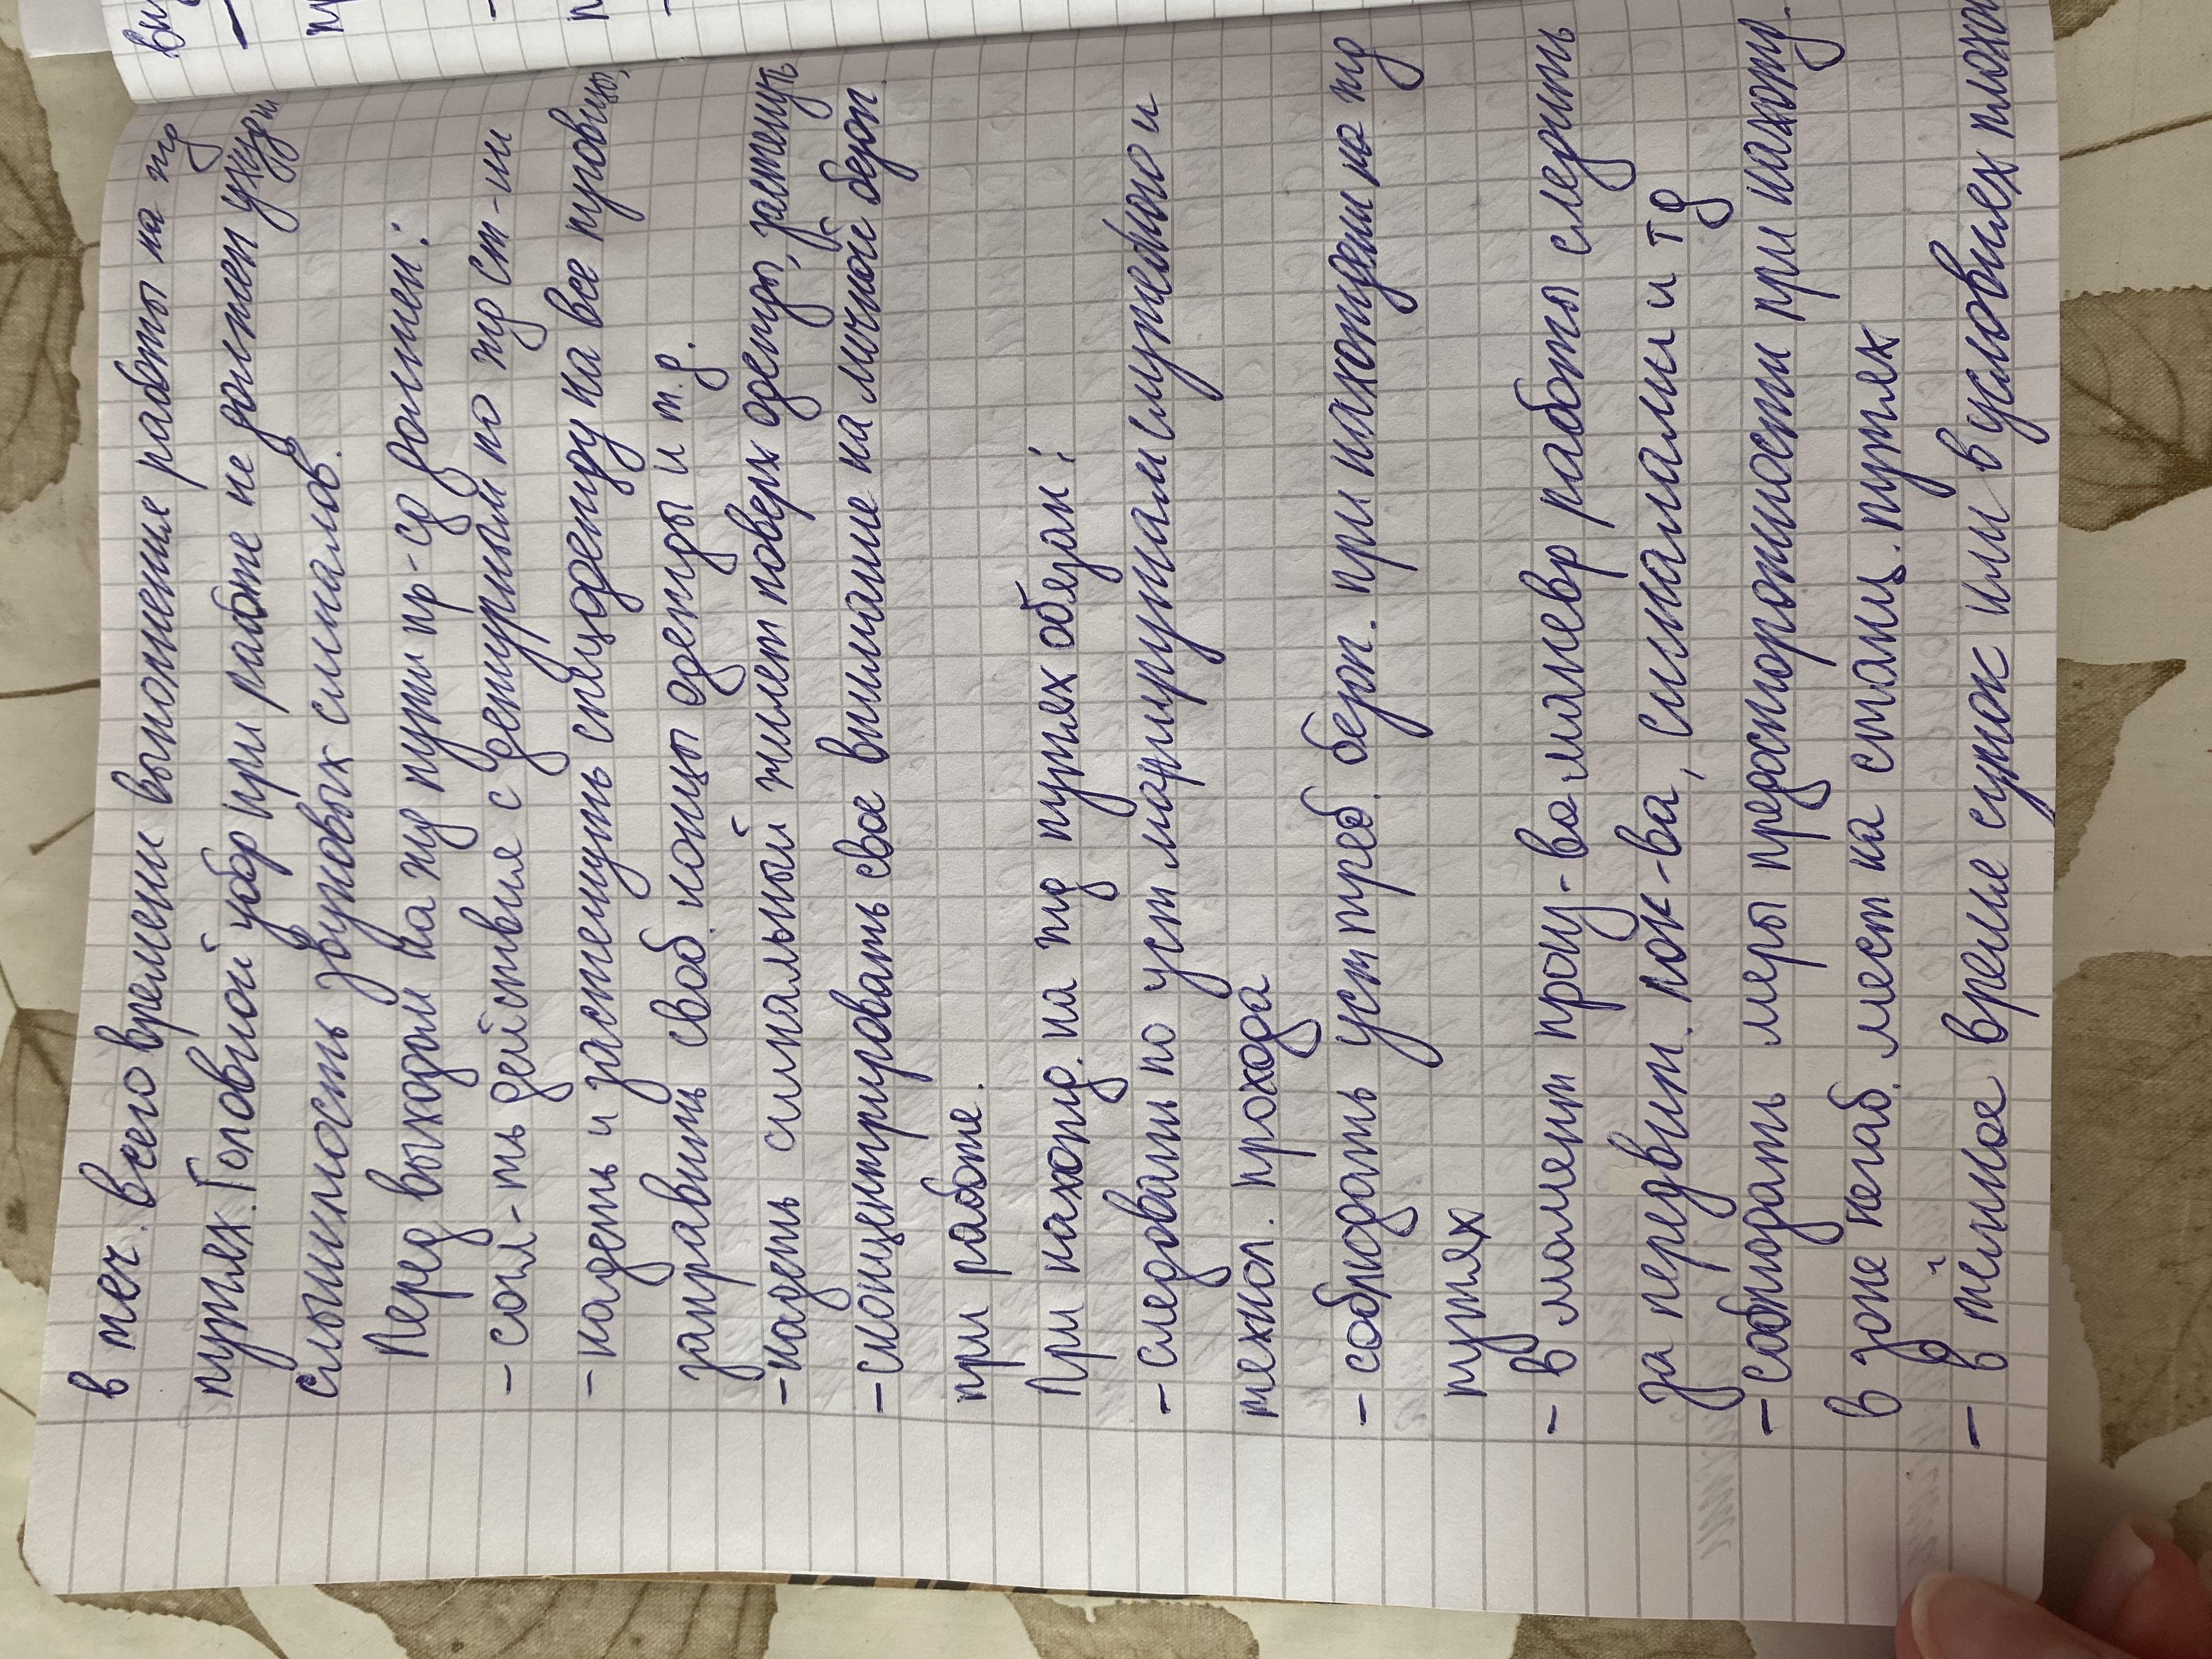 в теч. всего времени выполнения работы на жд
путях. Головной убор при работе не должен ухудш
слышимость звуковых сигналов.
Перед выходом на жд пути пр-сд должен:
- согл-ть действия с дежурным по жд ст-ии
- надеть и застегнуть спецодежду на все пуговицы,
заправить своб. концы одежды и т.д.
- надеть сигнальный жилет поверх одежды, застегнуть
- сконцентрировать свое внимание на личной безоп.
при работе.
При нахожд. на жд путях обязан:
- следовать по уст маршрутам служебного и
технол. прохода
- соблюдать уст треб. безоп. при нахождении на жд
путях
- в момент произ-ва маневр работы следить
за передвиж. лок-ва, сигналами и тд
- соблюдать меры предосторожности при нахожд.
в зоне негаб. мест на станц. путях
- в тёмное время суток или в условиях плохи